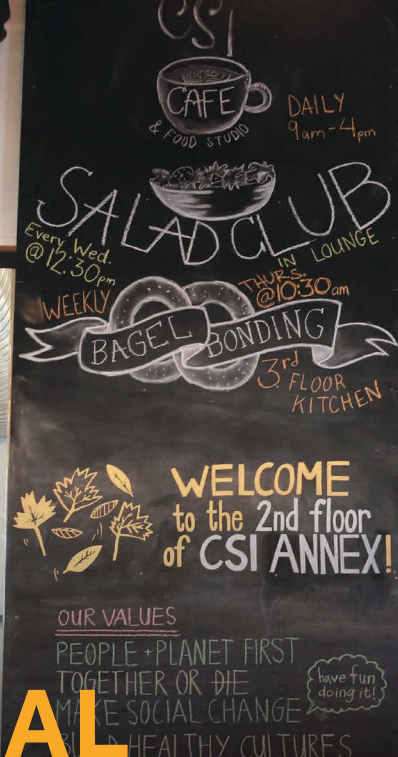 CSI
CAFE
& FOOD STUDIO
DAILY
9am-4pm
SALAD CLUB
Every Wed.
@12:30pm
IN LOUNGE
WEEKLY
THURS.
@10:30am
BAGEL BONDING
3rd FLOOR
KITCHEN
WELCOME
to the 2nd floor
of CSI ANNEX!
OUR VALUES
PEOPLE + PLANET FIRST
TOGETHER OR DIE
MAKE SOCIAL CHANGE
have fun
doing it!
BUILD HEALTHY CULTURES
AL